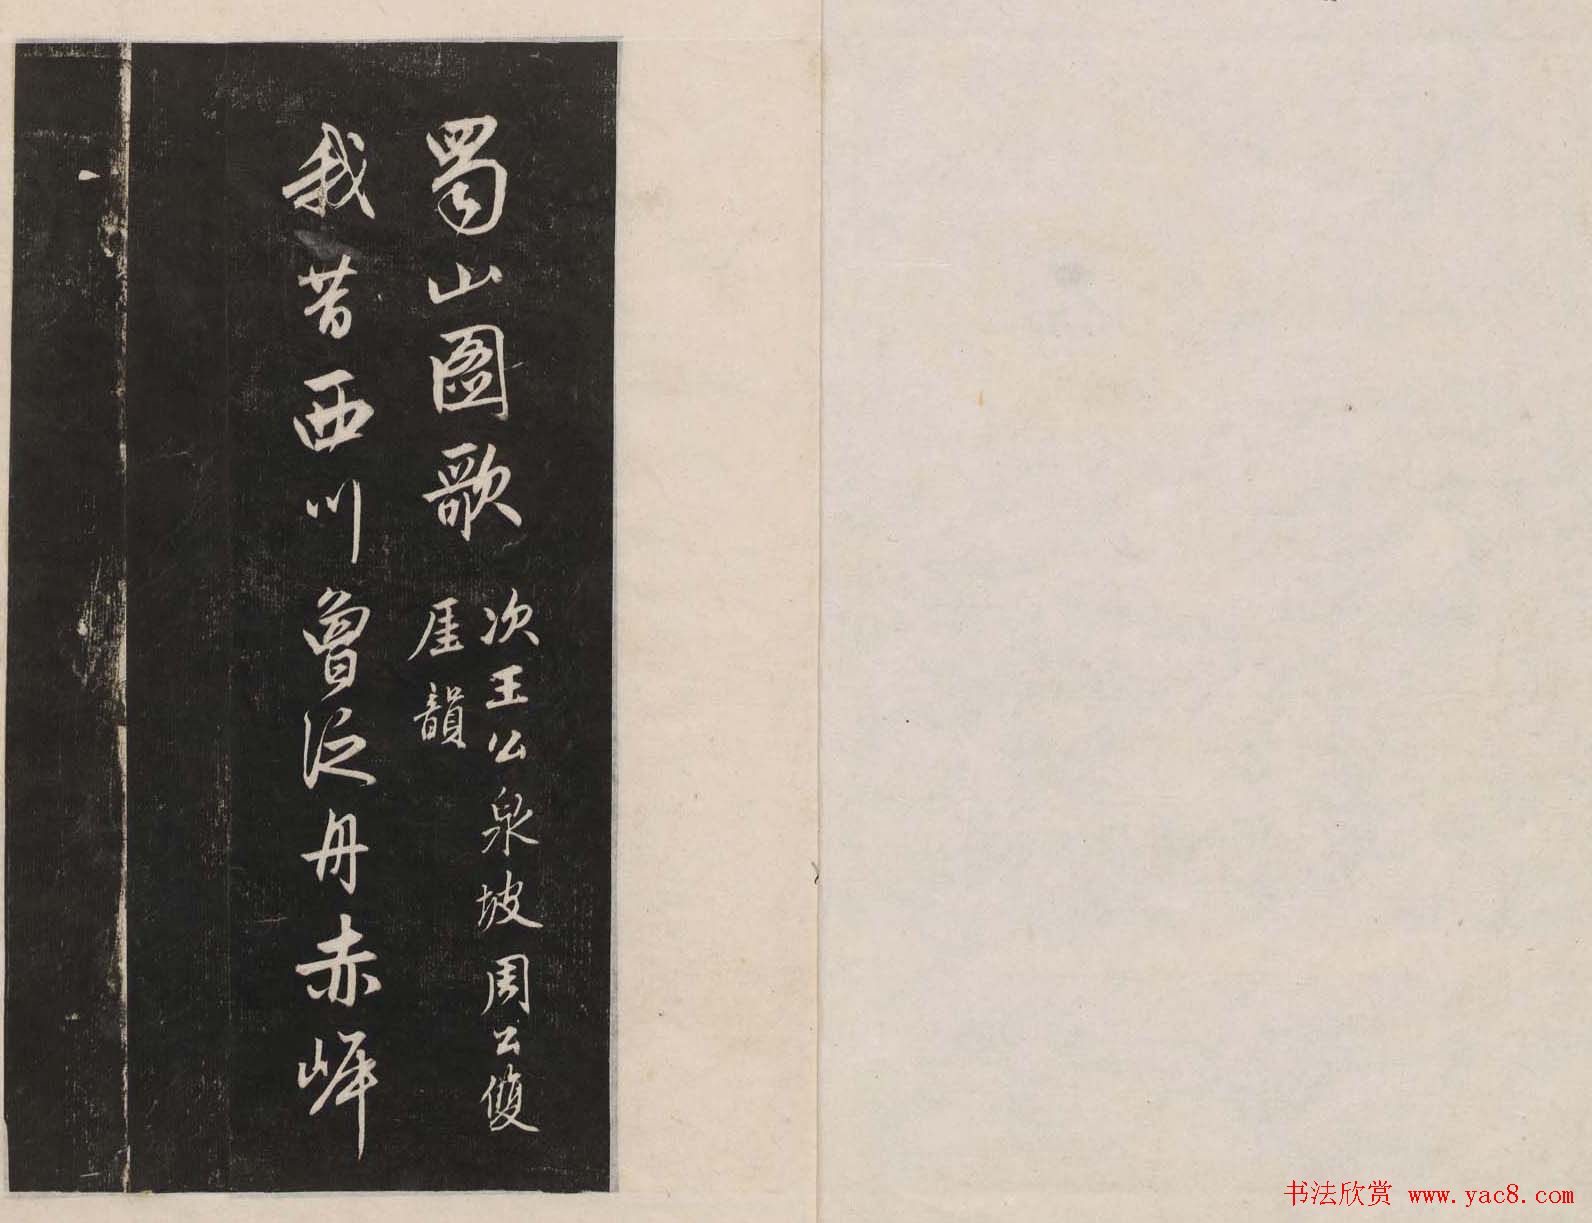 蜀山圖歌
次王公泉坡周公雙
厓韻
我昔西川曾泛舟赤岸
书法欣赏 www.yac8.com